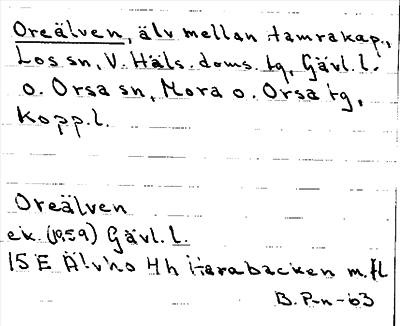 Oreälven, älv mellan Hamrakap.,
Los sn, V. Häls. doms. tg, Gävl. l.
o. Orsa sn, Mora o. Orsa tg,
Kopp. l.
Oreälven
ek. (1959) Gävl. l.
15 E Älvho Hh
B. P-n-63